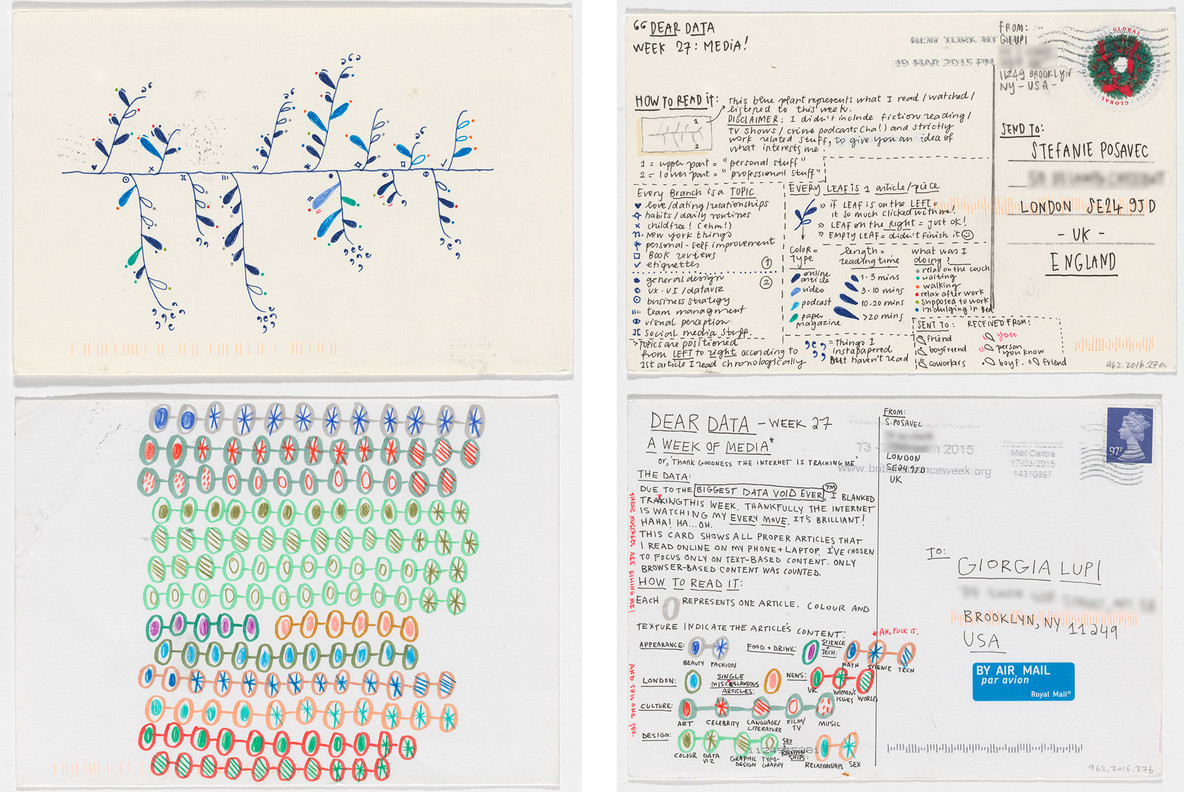 “ DEAR DATA
WEEK 27: MEDIA!
NEW YORK NY
19 MAR 2015 PM
FROM:
GIUPI
11249 BROOKLYN
NY - USA -
GLOBAL
HOW TO READ IT:
This blue plant represents what I read / watched /
listened to this week.
DISCLAIMER: I didn't include fiction reading /
TV shows / crime podcasts (ha!) and strictly
work related stuff, to give you an idea of
what interests me.
1
2
1 = upper part = "personal stuff"
2 = lower part = "professional stuff"
Every Branch is a TOPIC
love/dating/relationships
habits / daily routines
childfree! (ehm!)
New York things
personal-self improvement
Book reviews
etiquettes
1
general design
2
UX - UI / dataviz
business strategy
team managment
visual perception
Social media stuff.
Topics are positioned
from LEFT to Right according to
1st article I read chronologically
EVERY LEAF is 1 article/piece
» if LEAF is on the LEFT =
it so much clicked with me!
» LEAF on the Right = just ok!
» EMPTY LEAF = didn't finish it
COLOR =
TYPE
online
article
video
podcast
paper
magazine
length =
reading time
1-3 mins
3-10 mins
10-20 mins
>20 mins
what was I
doing?
relax on the couch
waiting
walking
relax after work
supposed to work
indulging in Bed
= Things I
instapapered
But haven't read
SENT TO:
friend
boyfriend
coworkers
RECEIVED FROM:
you
person
you know
boyf.
friend
SEND TO:
STEFANIE POSAVEC
LONDON SE24 9JD
- UK -
ENGLAND
962.2016.27a
DEAR DATA - WEEK 27
A WEEK OF MEDIA*
*or, 'THANK GOODNESS THE INTERNET IS TRACKING ME'
THE DATA:
DUE TO THE BIGGEST DATA VOID EVER™ I BLANKED
TRACKING THIS WEEK. THANKFULLY THE INTERNET
IS WATCHING MY EVERY MOVE. IT'S BRILLIANT!
HAHA! HA...OH.
THIS CARD SHOWS ALL PROPER ARTICLES THAT
I READ ONLINE ON MY PHONE+LAPTOP. I'VE CHOSEN
TO FOCUS ONLY ON TEXT-BASED CONTENT. ONLY
BROWSER-BASED CONTENT WAS COUNTED.
HOW TO READ IT:
EACH REPRESENTS ONE ARTICLE. COLOUR AND
TEXTURE INDICATE THE ARTICLE'S CONTENT:
*AH, FUCK IT.
APPEARANCE:
BEAUTY FASHION
FOOD + DRINK:
SCIENCE
+
TECH:
MATH SCIENCE TECH
LONDON:
SINGLE
MISCELLANEOUS
ARTICLES:
NEWS:
UK WOMEN'S ISSUES WORLD
CULTURE:
ART CELEBRITY LANGUAGE/ LITERATURE FILM/ TV MUSIC
DESIGN:
COLOUR DATA VIZ GRAPHIC DESIGN TYPOGRAPHY
SEX
+
RELATIONSHIPS:
RELATIONSHIPS SEX
FROM:
S. POSAVEC
LONDON
SE24 9JD
UK
2015
Mail Centre
17/03/2015
14310867
97p
TO:
GIORGIA LUPI
BROOKLYN, NY 11249
USA
BY AIR MAIL
par avion
Royal Mail®
962.2016.27b